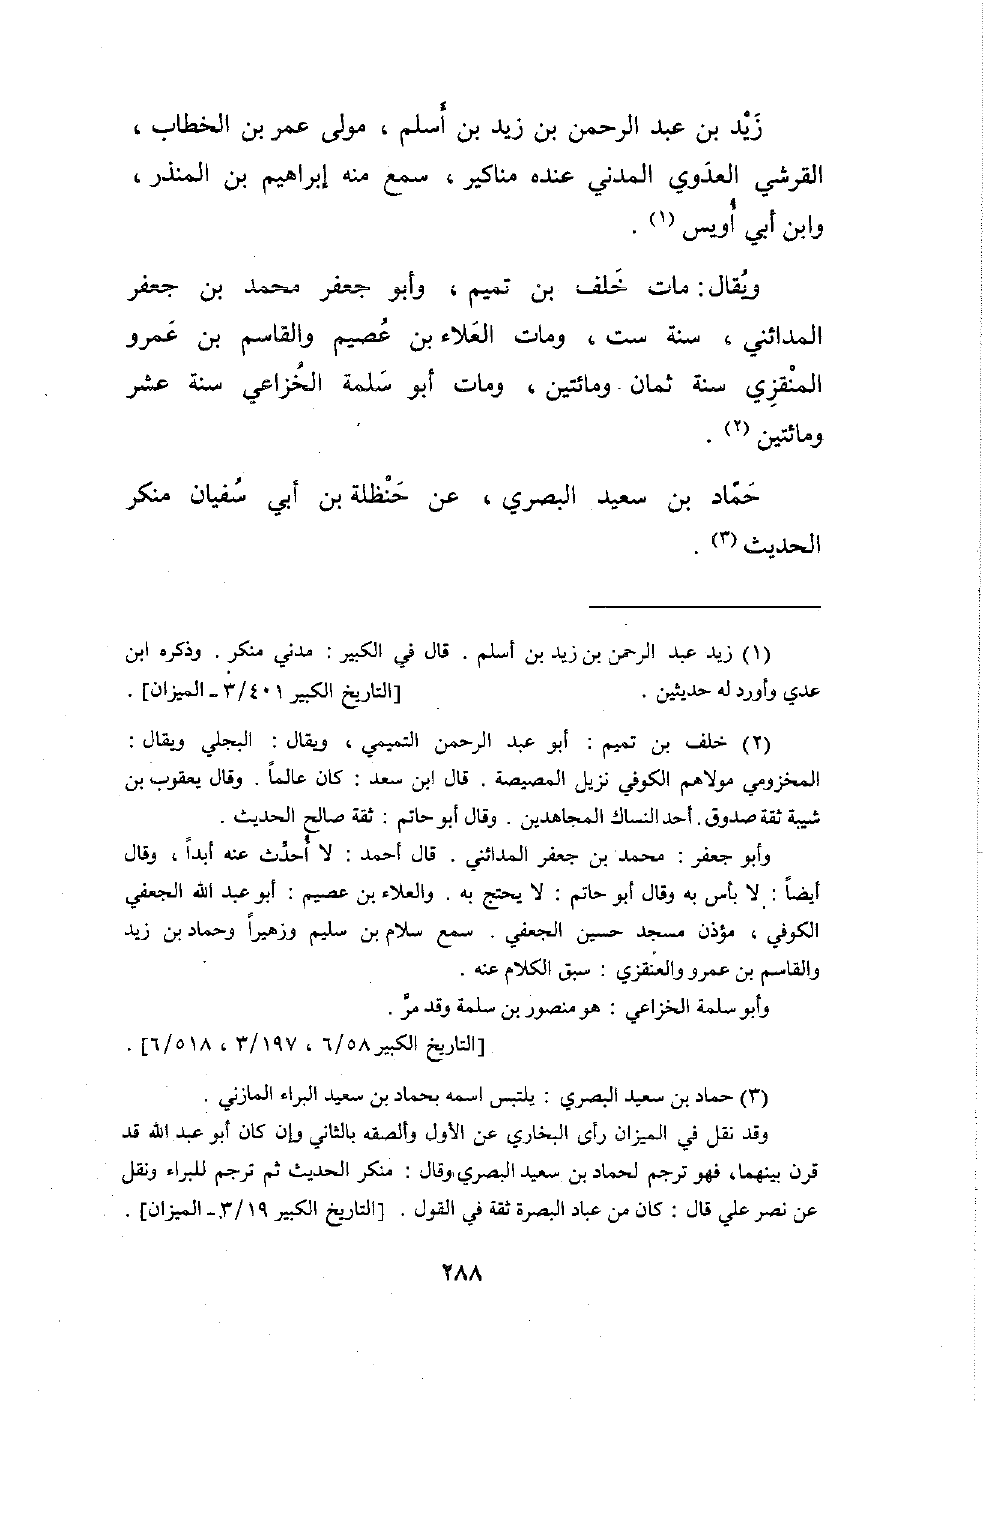 زَيْد بن عبد الرحمن بن زيد بن أُسلم ، مولى عمر بن الخطاب ،
القرشي العدَوي المدني عنده مناكير ، سمع منه إبراهيم بن المنذر ،
وابن أبي أُويس (١) .
ويُقال : مات خَلف بن تميم ، وأبو جعفر محمد بن جعفر
المدائني ، سنة ست ، ومات العَلاء بن عُصيم والقاسم بن عَمرو
المنْقزِي سنة ثمان ومائتين ، ومات أبو سَلمة الخُزاعي سنة عشر
ومائتين (٢) .
حَمّاد بن سعيد البصري ، عن حَنْظلة بن أبي سُفيان منكر
الحديث (٣) .
(١) زيد عبد الرحمن بن زيد بن أسلم . قال في الكبير : مدني منكر . وذكره ابن
عدي وأورد له حديثين . [التاريخ الكبير ٣/٤٠١ ـ الميزان] .
(٢) خلف بن تميم : أبو عبد الرحمن التميمي ، ويقال : البجلي ويقال :
المخزومي مولاهم الكوفي نزيل المصيصة . قال ابن سعد : كان عالماً . وقال يعقوب بن
شيبة ثقة صدوق . أحد النساك المجاهدين . وقال أبو حاتم : ثقة صالح الحديث .
وأبو جعفر : محمد بن جعفر المدائني . قال أحمد : لا أُحدِّث عنه أبداً ، وقال
أيضاً : لا بأس به وقال أبو حاتم : لا يحتج به . والعلاء بن عصيم : أبو عبد الله الجعفي
الكوفي ، مؤذن مسجد حسين الجعفي . سمع سلام بن سليم وزهيراً وحماد بن زيد
والقاسم بن عمرو والعنقزي : سبق الكلام عنه .
وأبو سلمة الخزاعي : هو منصور بن سلمة وقد مرَّ .
[التاريخ الكبير ٦/٥٨ ، ٣/١٩٧ ، ٦/٥١٨] .
(٣) حماد بن سعيد البصري : يلتبس اسمه بحماد بن سعيد البراء المازني .
وقد نقل في الميزان رأى البخاري عن الأول وألصقه بالثاني وإن كان أبو عبد الله قد
قرن بينهما، فهو ترجم لحماد بن سعيد البصري وقال : منكر الحديث ثم ترجم للبراء ونقل
عن نصر علي قال : كان من عباد البصرة ثقة في القول . [التاريخ الكبير ٣/١٩ ـ الميزان] .
٢٨٨